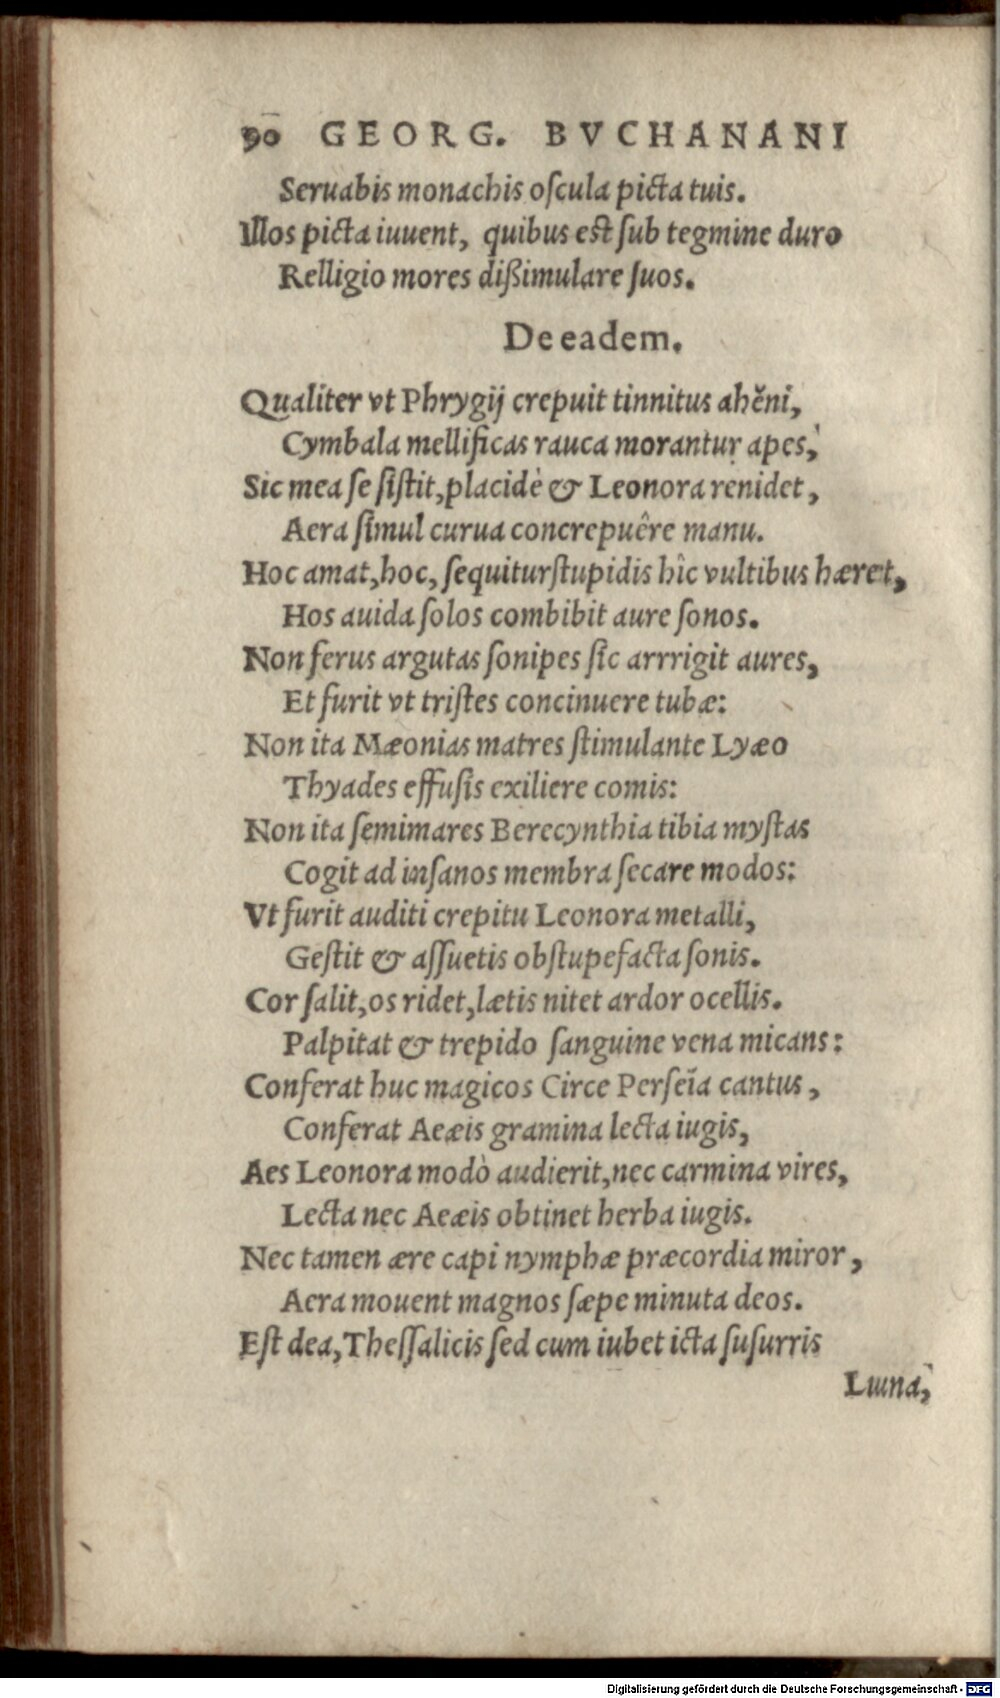 90 GEORG. BVCHANANI
Seruabis monachis oſcula picta tuis.
Illos picta iuuent, quibus est ſub tegmine duro
Relligio mores dißimulare ſuos.
De eadem.
Qualiter vt Phrygij crepuit tinnitus ahĕni,
Cymbala mellificas rauca morantur apes,
Sic mea ſe ſiſtit, placidè & Leonora renidet,
Aera ſimul curua concrepuêre manu.
Hoc amat, hoc, ſequitur ſtupidis hîc vultibus hæret,
Hos auida ſolos combibit aure ſonos.
Non ferus argutas ſonipes ſic arrrigit aures,
Et furit vt triſtes concinuere tubæ:
Non ita Mæonias matres ſtimulante Lyæo
Thyades effuſis exiliere comis:
Non ita ſemimares Berecynthia tibia myſtas
Cogit ad inſanos membra ſecare modos:
Vt furit auditi crepitu Leonora metalli,
Geſtit & aſſuetis obſtupefacta ſonis.
Cor ſalit, os ridet, lætis nitet ardor ocellis.
Palpitat & trepido ſanguine vena micans:
Conferat huc magicos Circe Perſeïa cantus,
Conferat Aeæis gramina lecta iugis,
Aes Leonora modò audierit, nec carmina vires,
Lecta nec Aeæis obtinet herba iugis.
Nec tamen ære capi nymphæ præcordia miror,
Aera mouent magnos ſæpe minuta deos.
Eſt dea, Theſſalicis ſed cum iubet icta ſuſurris
Luna,
Digitalisierung gefördert durch die Deutsche Forschungsgemeinschaft - DFG